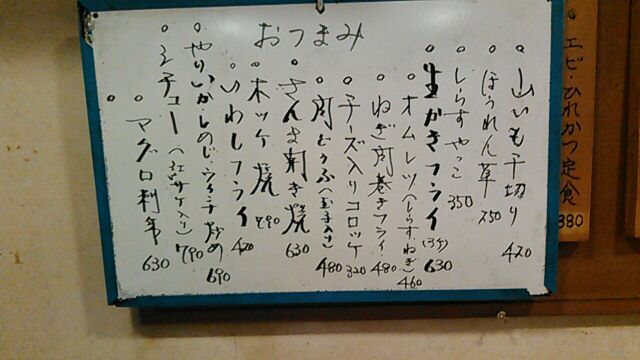 おつまみ
。山いも千切り 420
。ほうれん草 250
。しらすやっこ 350
。生かきフライ(3ヶ) 630
。オムレツ(しらすねぎ) 460
。ねぎ肉巻きフライ 480
。チーズ入りコロッケ 320
。肉どうふ(玉子入り) 480
。さんま刺き焼 630
。木ッケ焼 790
。いわしフライ 420
。やりいかしめじ 炒め 690
。シチュー 790
。マグロ刺身 630
。エビ・ひれかつ定食 880